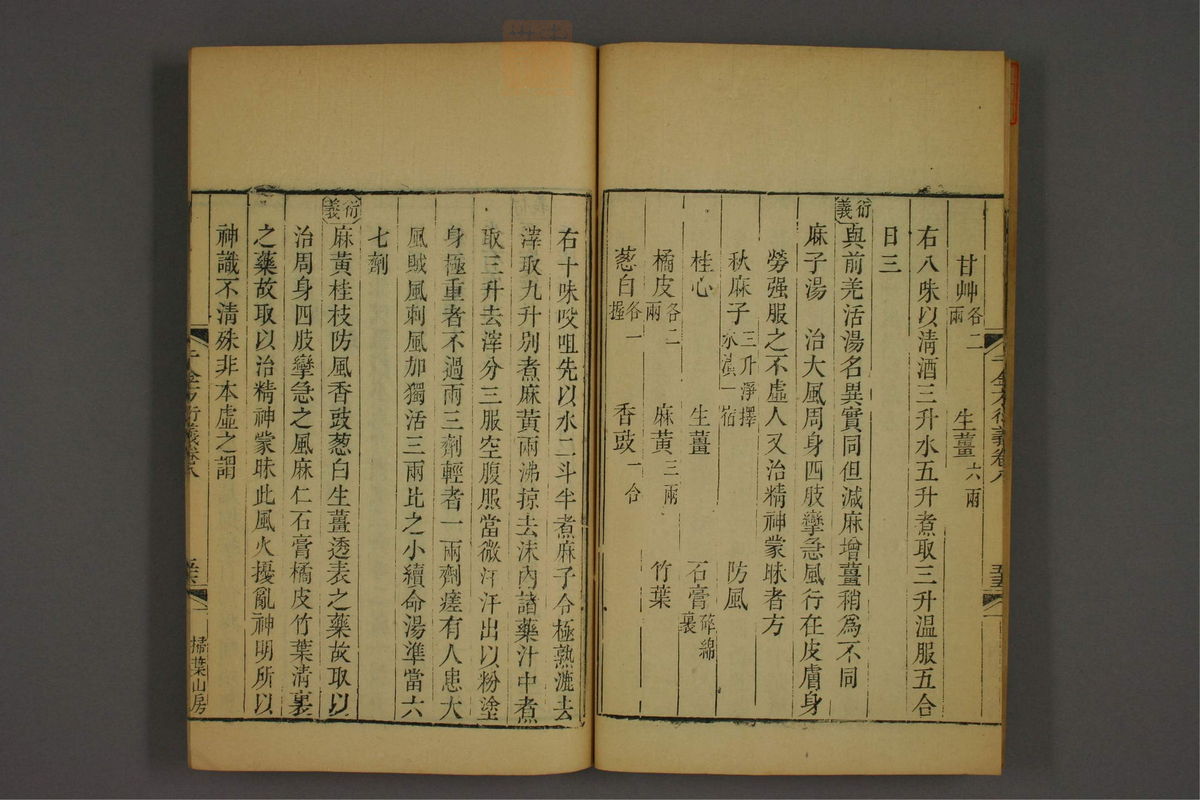 甘艸各二兩 生薑六兩
右八味以清酒三升水五升煮取三升温服五合
日三
衍義與前羌活湯名異實同但減麻增薑稍爲不同
麻子湯 治大風周身四肢攣急風行在皮膚身
勞强服之不虛人又治精神蒙昧者方
秋麻子三升淨擇水漬一宿 防風
桂心 生薑 石膏碎綿裹
橘皮各二兩 麻黄三兩 竹葉
葱白各一握 香豉一合
右十味㕮咀先以水二斗半煮麻子令極熟漉去
滓取九升别煮麻黄兩沸掠去沫内諸藥汁中煮
取三升去滓分三服空腹服當微汗汗出以粉塗
身極重者不過兩三劑輕者一兩劑瘥有人患大
風賊風刺風加獨活三兩比之小續命湯準當六
七劑
衍義麻黄桂枝防風香豉葱白生薑透表之藥故取以
治周身四肢攣急之風麻仁石膏橘皮竹葉清裏
之藥故取以治精神蒙昧此風火擾亂神明所以
神識不清殊非本虛之謂
千金方衍義卷八
掃葉山房